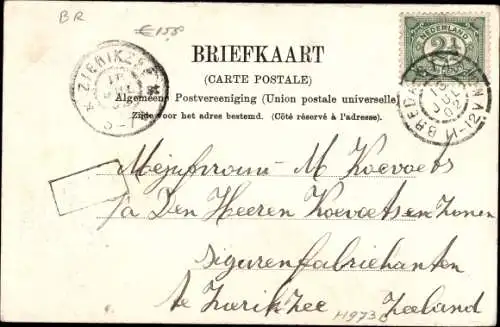 BR
€ 15,8
BRIEFKAART
(CARTE POSTALE)
Algemeene Postvereeniging (Union postale universelle)
Zijde voor het adres bestemd. (Côté réservé à l'adresse.)
NEDERLAND
2½
ZIERIKZEE
BREDA
11-12 V
Mejufvrouw M Koevoets
p/a Den Heeren Koevoets en Zonen
sigurenfabriehanten
te Zierikzee Zeeland